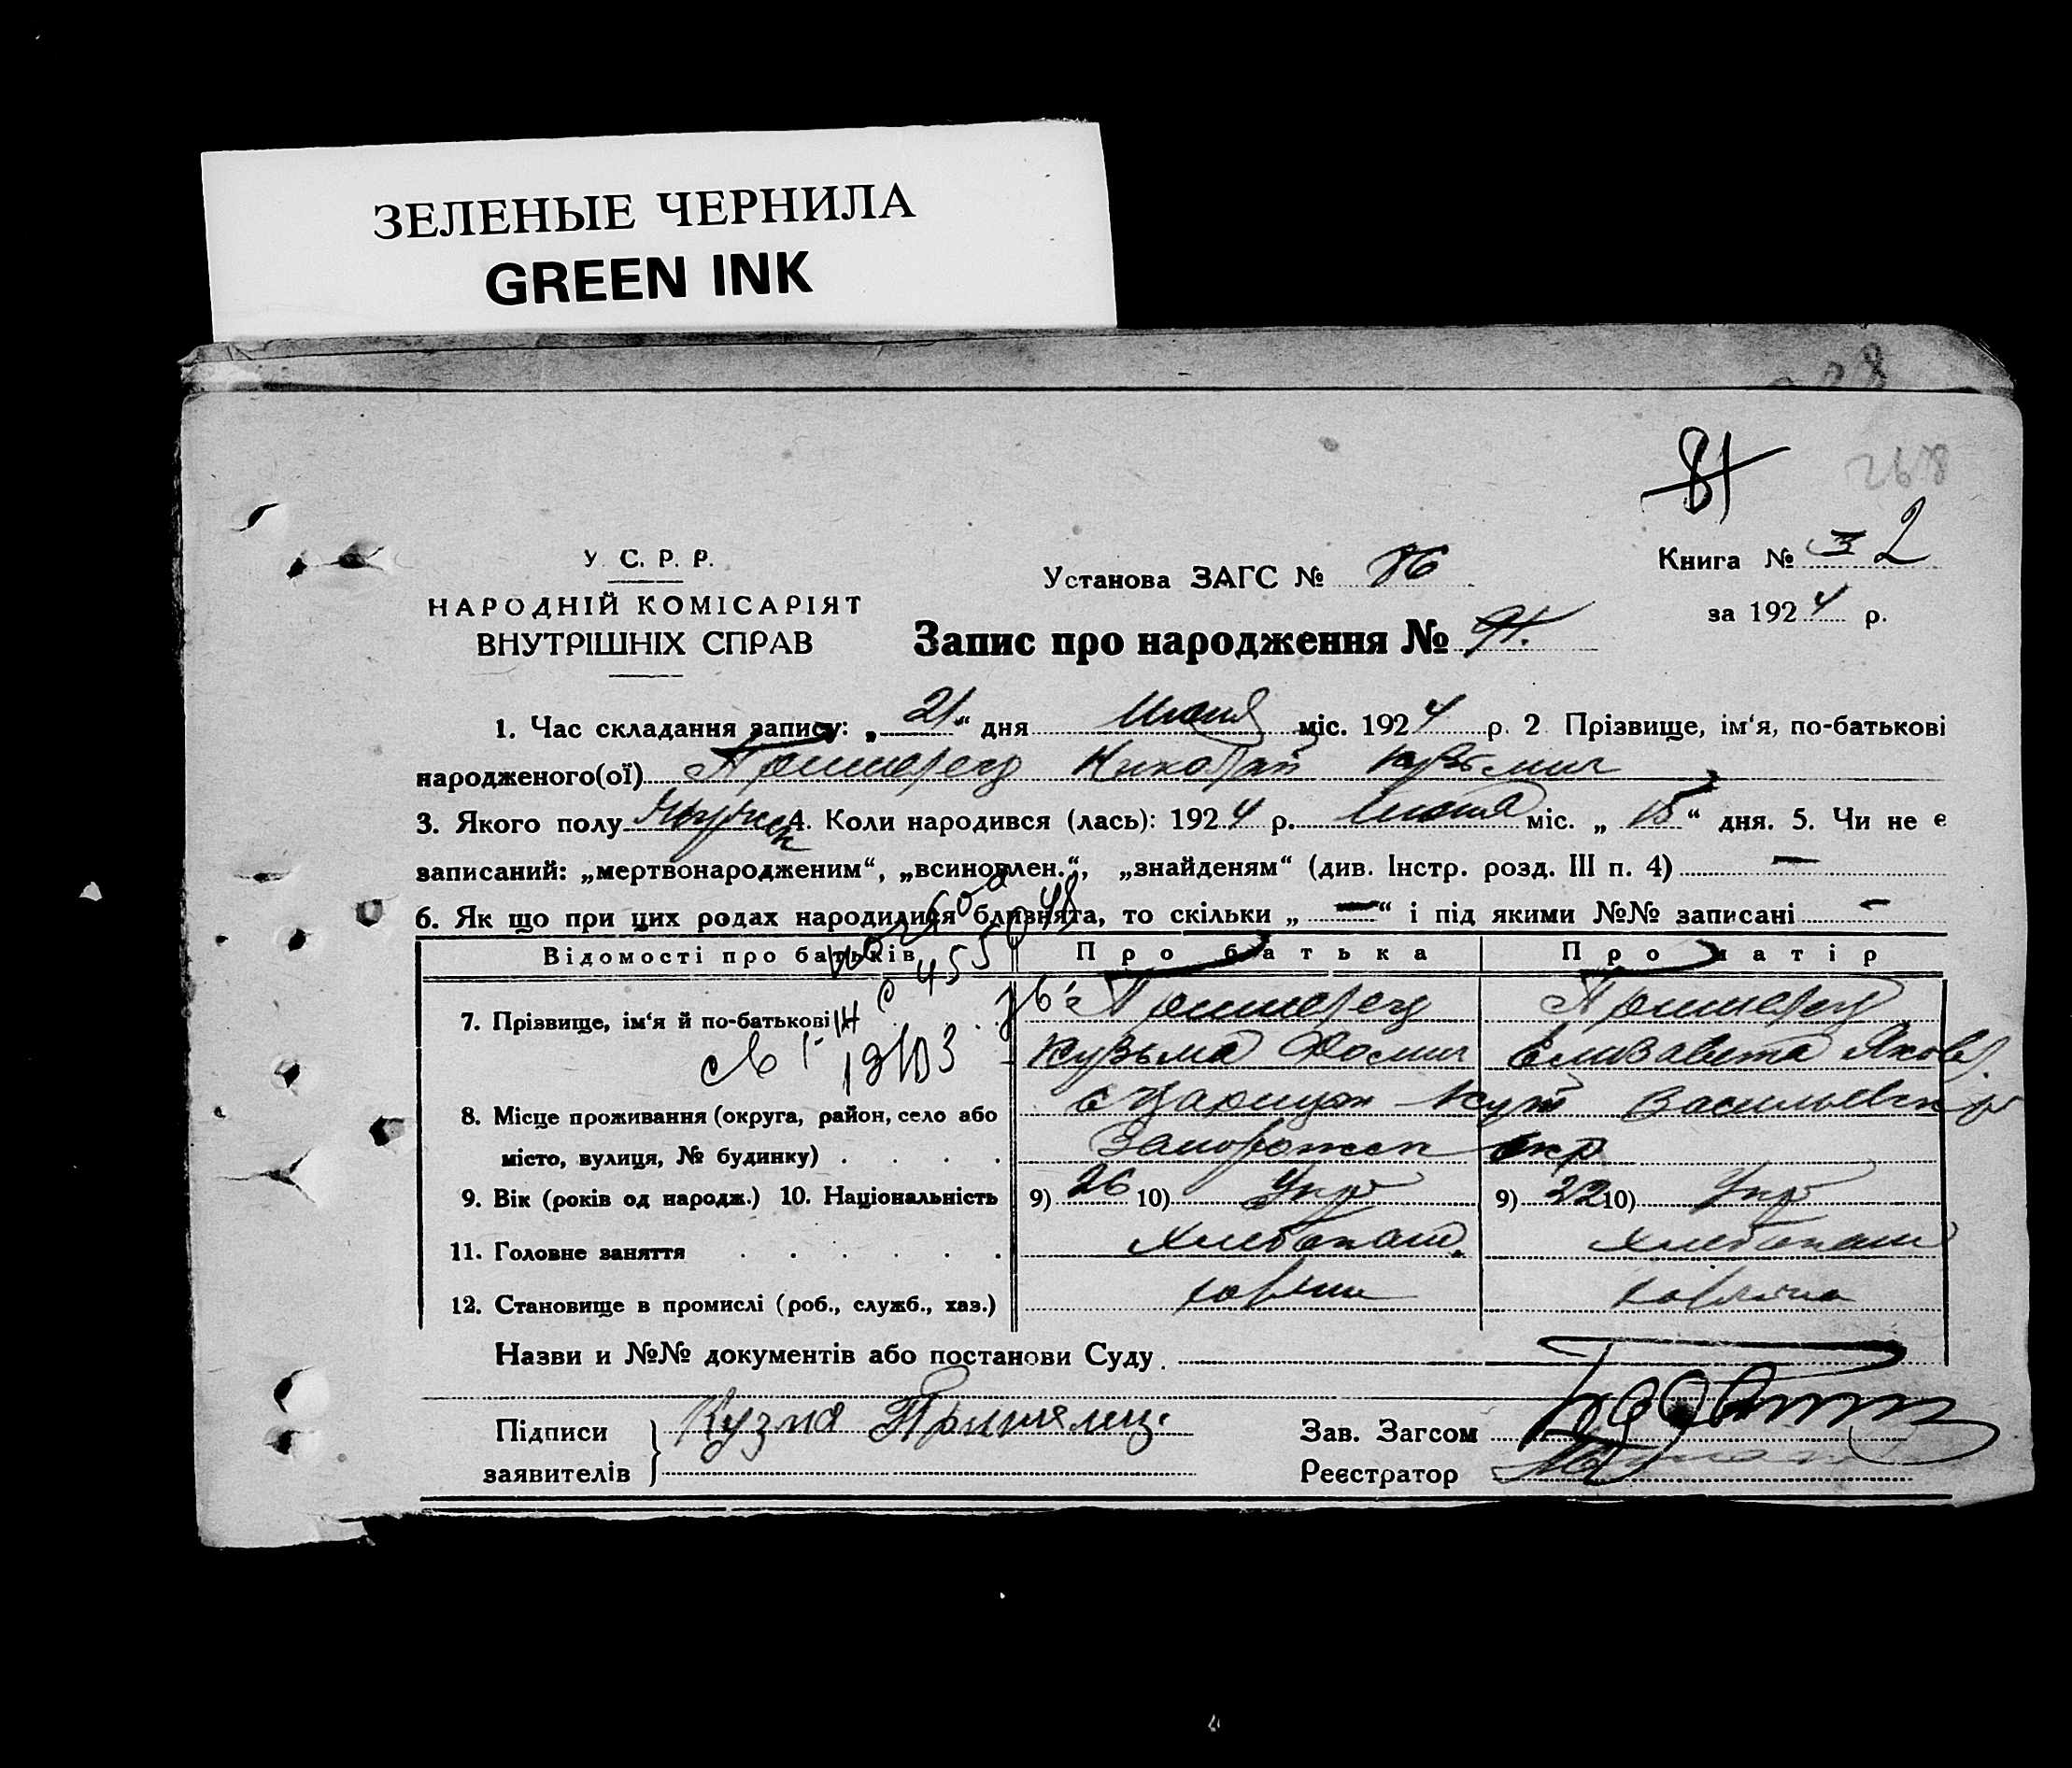 ЗЕЛЕНЫЕ ЧЕРНИЛА
GREEN INK
81
268
У. С. Р. Р.
НАРОДНІЙ КОМІСАРІЯТ
ВНУТРІШНІХ СПРАВ
Установа ЗАГС № 86
Книга № 3 2
за 1924 р.
Запис про народження № 91.
1. Час складання запису: „21“ дня Июня міс. 1924 р. 2 Прізвище, ім'я, по-батькові
народженого(ої) Пришелец Николай Кузьмич
3. Якого полу Мужск 4. Коли народився (лась): 1924 р. Июня міс. „15“ дня. 5. Чи не є
записаний: „мертвонародженим“, „всиновлен.“, „знайденям“ (див. Інстр. розд. III п. 4) —
6. Як що при цих родах народилися близнята, то скільки „—“ і під якими №№ записані —
Відомості про батьків Про батька Про матір
7. Прізвище, ім'я й по-батькові Пришелец Пришелец
Кузьма Фомич Елизавета Яковл.
8. Місце проживання (округа, район, село або с Царицын Кут Васильевск р
місто, вулиця, № будинку) Запорожск окр
9. Вік (років од народж.) 10. Національність 9) 26 10) Укр 9) 22 10) Укр
11. Головне заняття Хлебопаш. Хлебопаш
12. Становище в промислі (роб., служб., хаз.) хозяин хозяйка
Назви и №№ документів або постанови Суду.
Підписи Кузма Пришелец.
заявителів
Зав. Загсом
Реєстратор